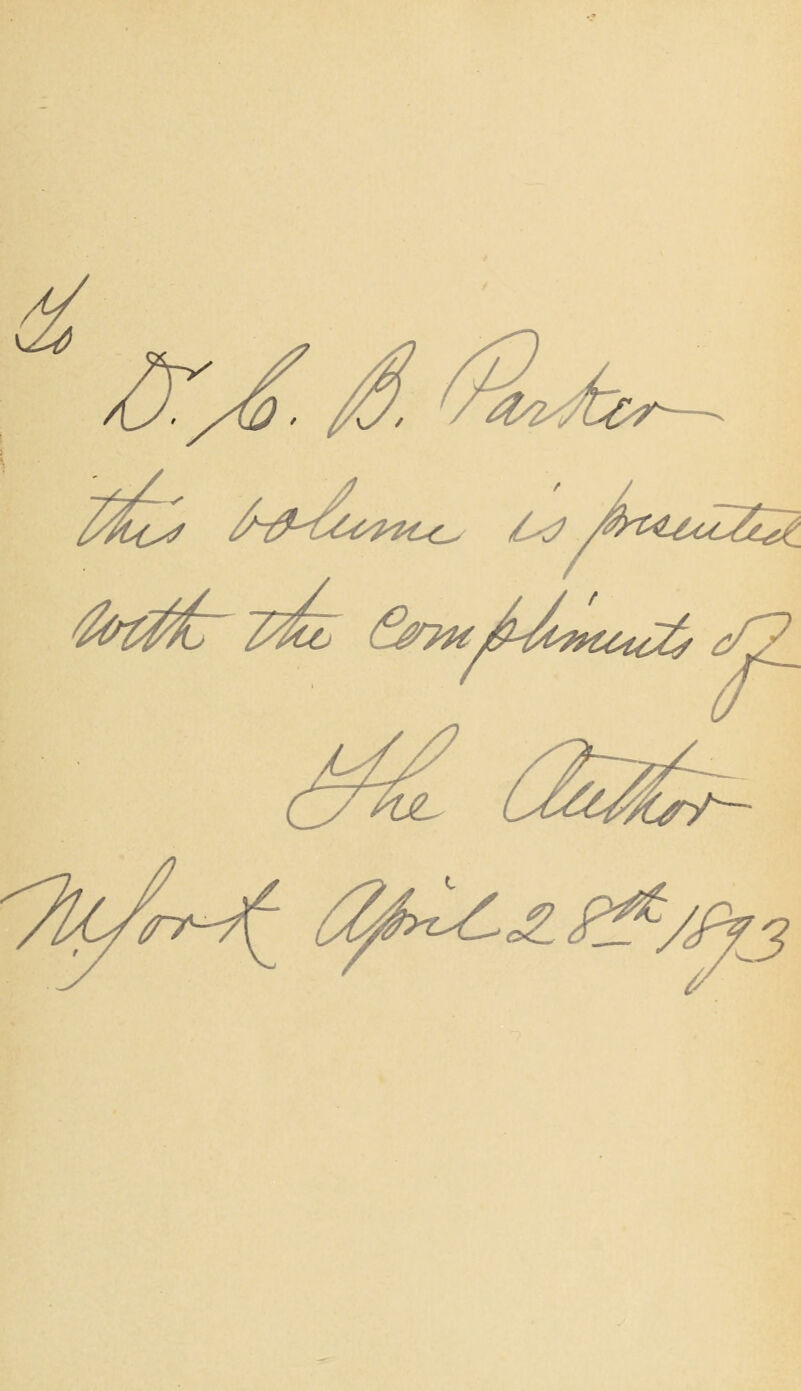 To
Dr. C. B. Parker
this volume is presented
with the compliments of
The Author
N.York April 28th 1893